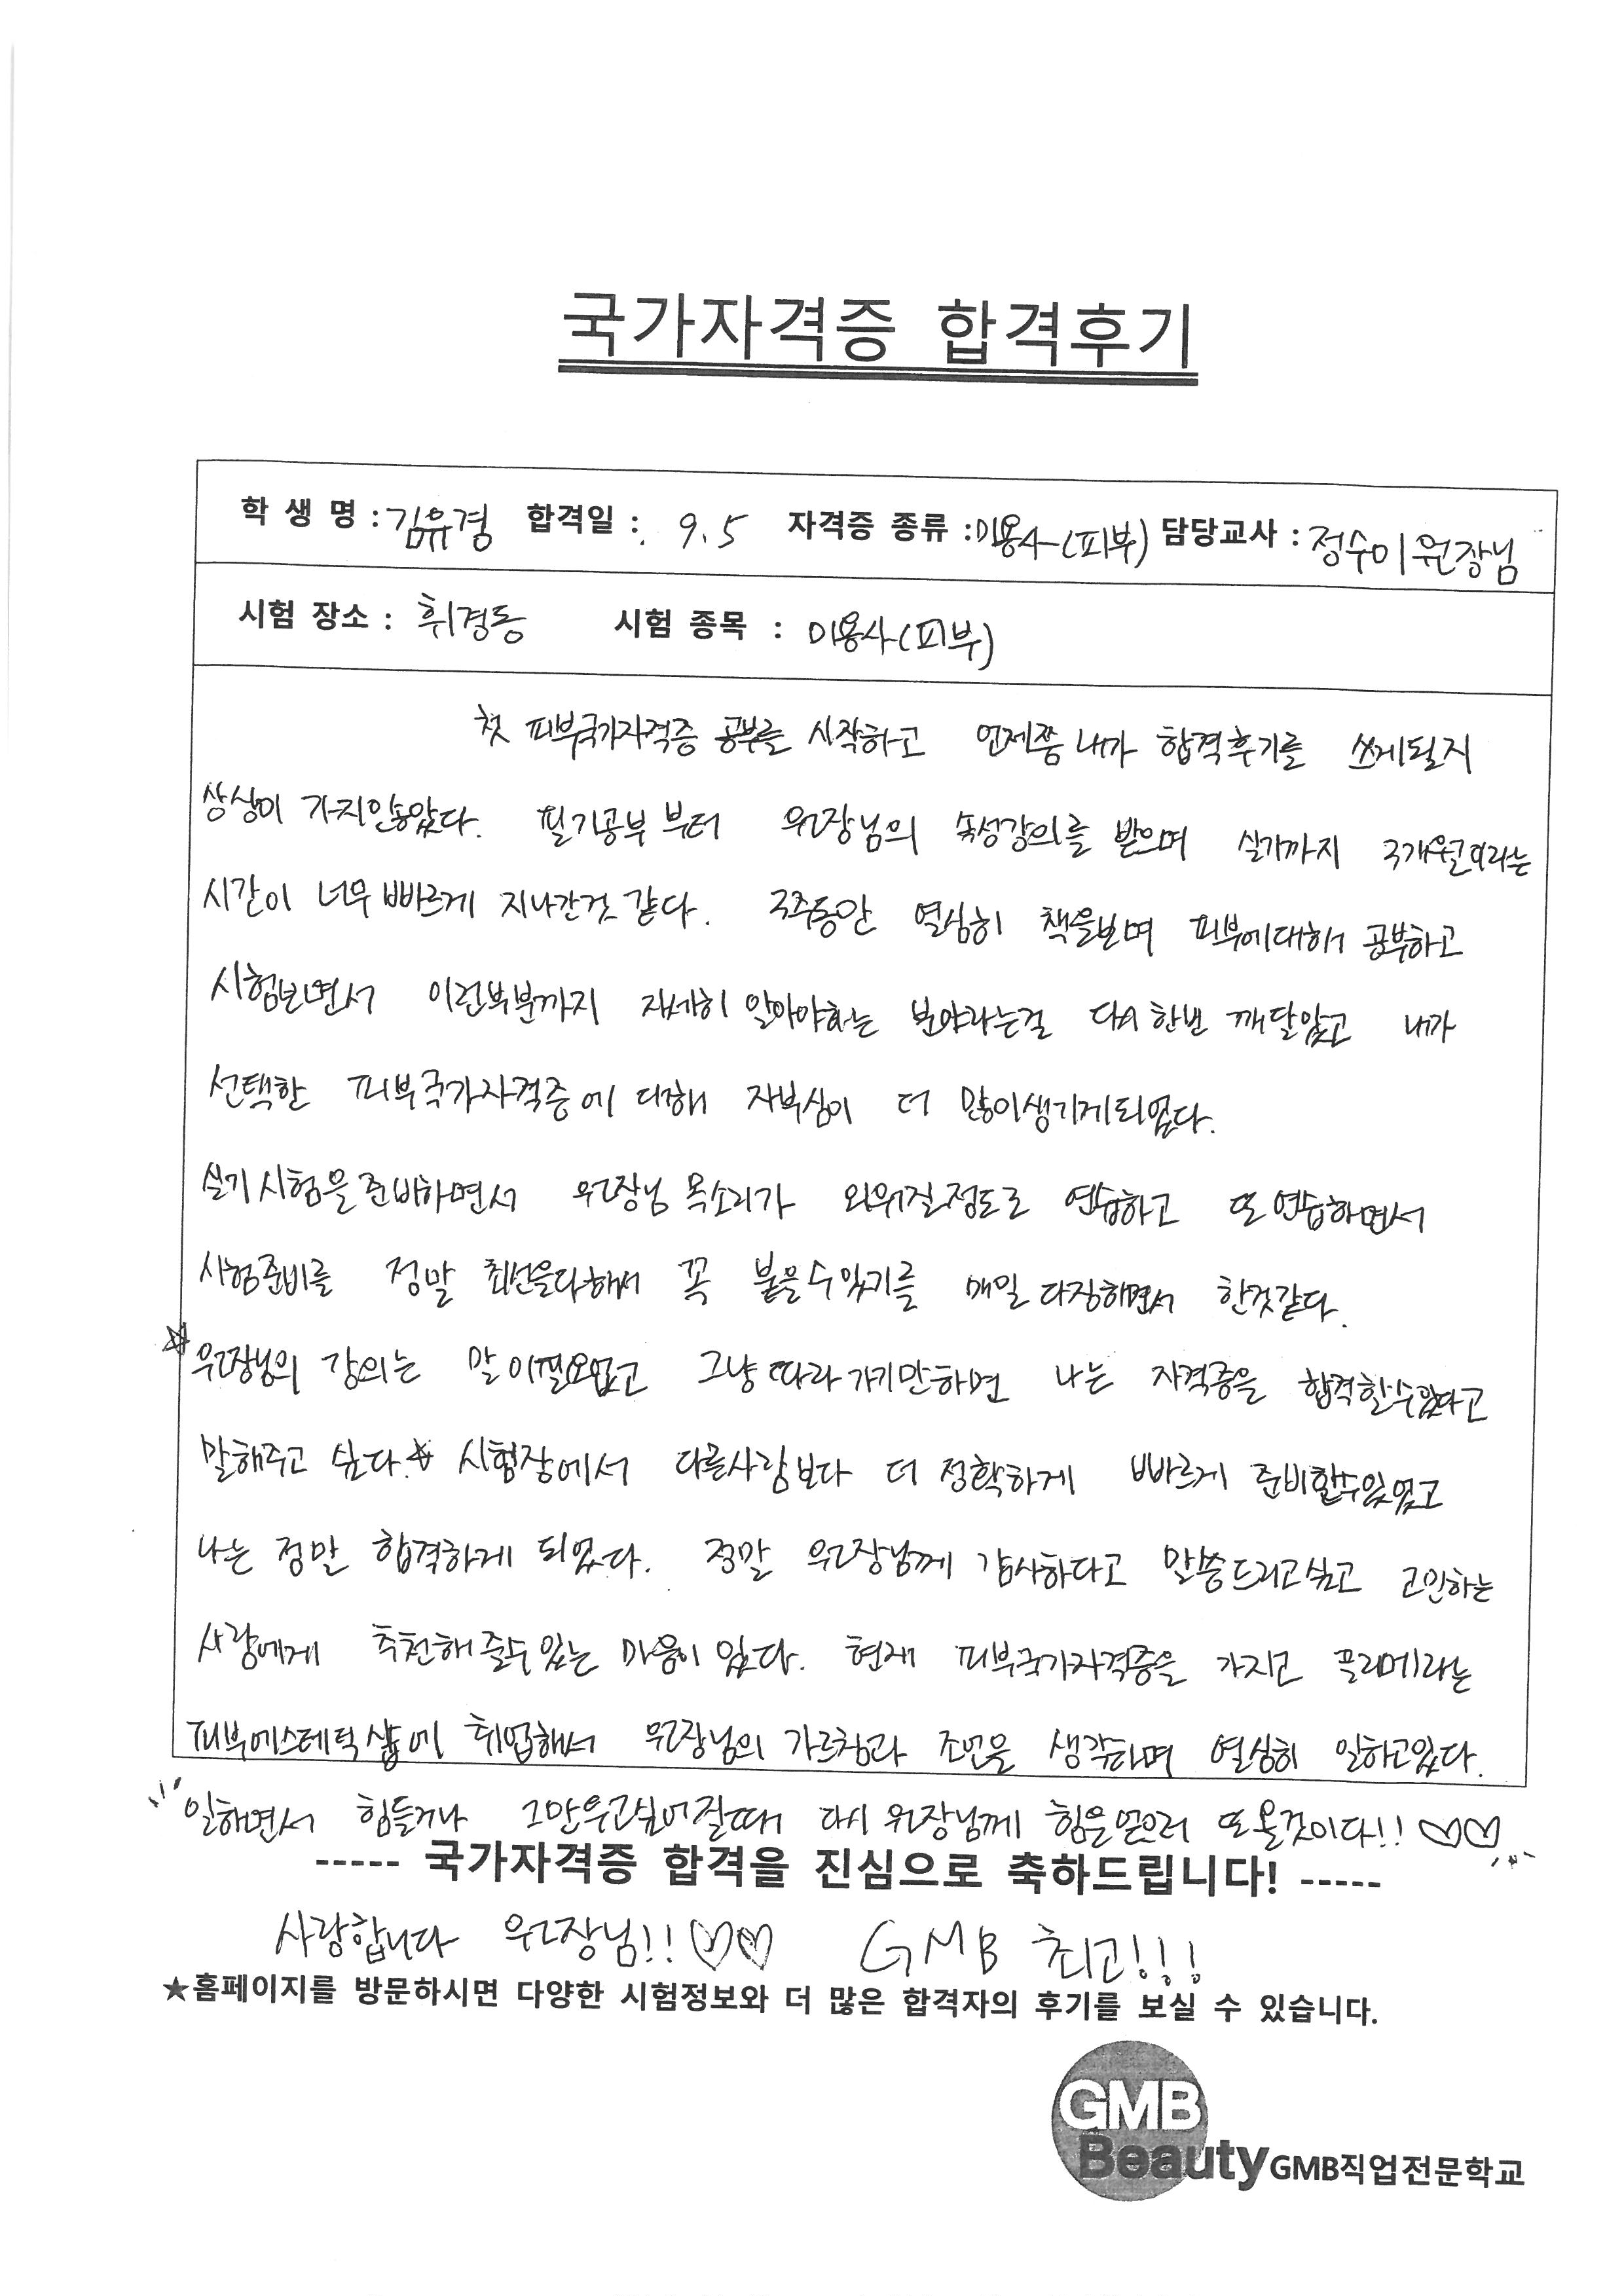 국가자격증 합격후기
학 생 명 : 김유경 합격일 : 9.5 자격증 종류 : 미용사(피부) 담당교사 : 정수미 원장님
시험 장소 : 휘경동 시험 종목 : 미용사(피부)
첫 피부국가자격증 공부를 시작하고 언제쯤 내가 합격후기를 쓰게될지
상상이 가지않았다. 필기공부 부터 원장님의 속성강의를 받으며 실기까지 3개월이라는
시간이 너무 빠르게 지나간것 같다. 3주동안 열심히 책을보며 피부에대해서 공부하고
시험보면서 이런부분까지 자세히 알아야하는 분야라는걸 다시 한번 깨달았고 내가
선택한 피부국가자격증에 대해 자부심이 더 많이생기게되었다.
실기 시험을 준비하면서 원장님 목소리가 외워질정도로 연습하고 또 연습하면서
시험준비를 정말 최선을다해서 꼭 붙을수있기를 매일 다짐하면서 한것같다.
☆원장님의 강의는 말이필요없고 그냥 따라가기만하면 나는 자격증을 합격할수있다고
말해주고 싶다.☆ 시험장에서 다른사람보다 더 정확하게 빠르게 준비할수있었고
나는 정말 합격하게 되었다. 정말 원장님께 감사하다고 말씀드리고싶고 고민하는
사람에게 추천해줄수있는 마음이 있다. 현재 피부국가자격증을 가지고 끌리메라는
피부에스테틱샵에 취업해서 원장님의 가르침과 조언을 생각하며 열심히 일하고있다.
일하면서 힘들거나 그만두고싶어질때 다시 원장님께 힘을얻으러 또올것이다!! ♡♡
----- 국가자격증 합격을 진심으로 축하드립니다! -----
사랑합니다 원장님!!♡♡ GMB 최고!!!
★홈페이지를 방문하시면 다양한 시험정보와 더 많은 합격자의 후기를 보실 수 있습니다.
GMB
Beauty GMB직업전문학교